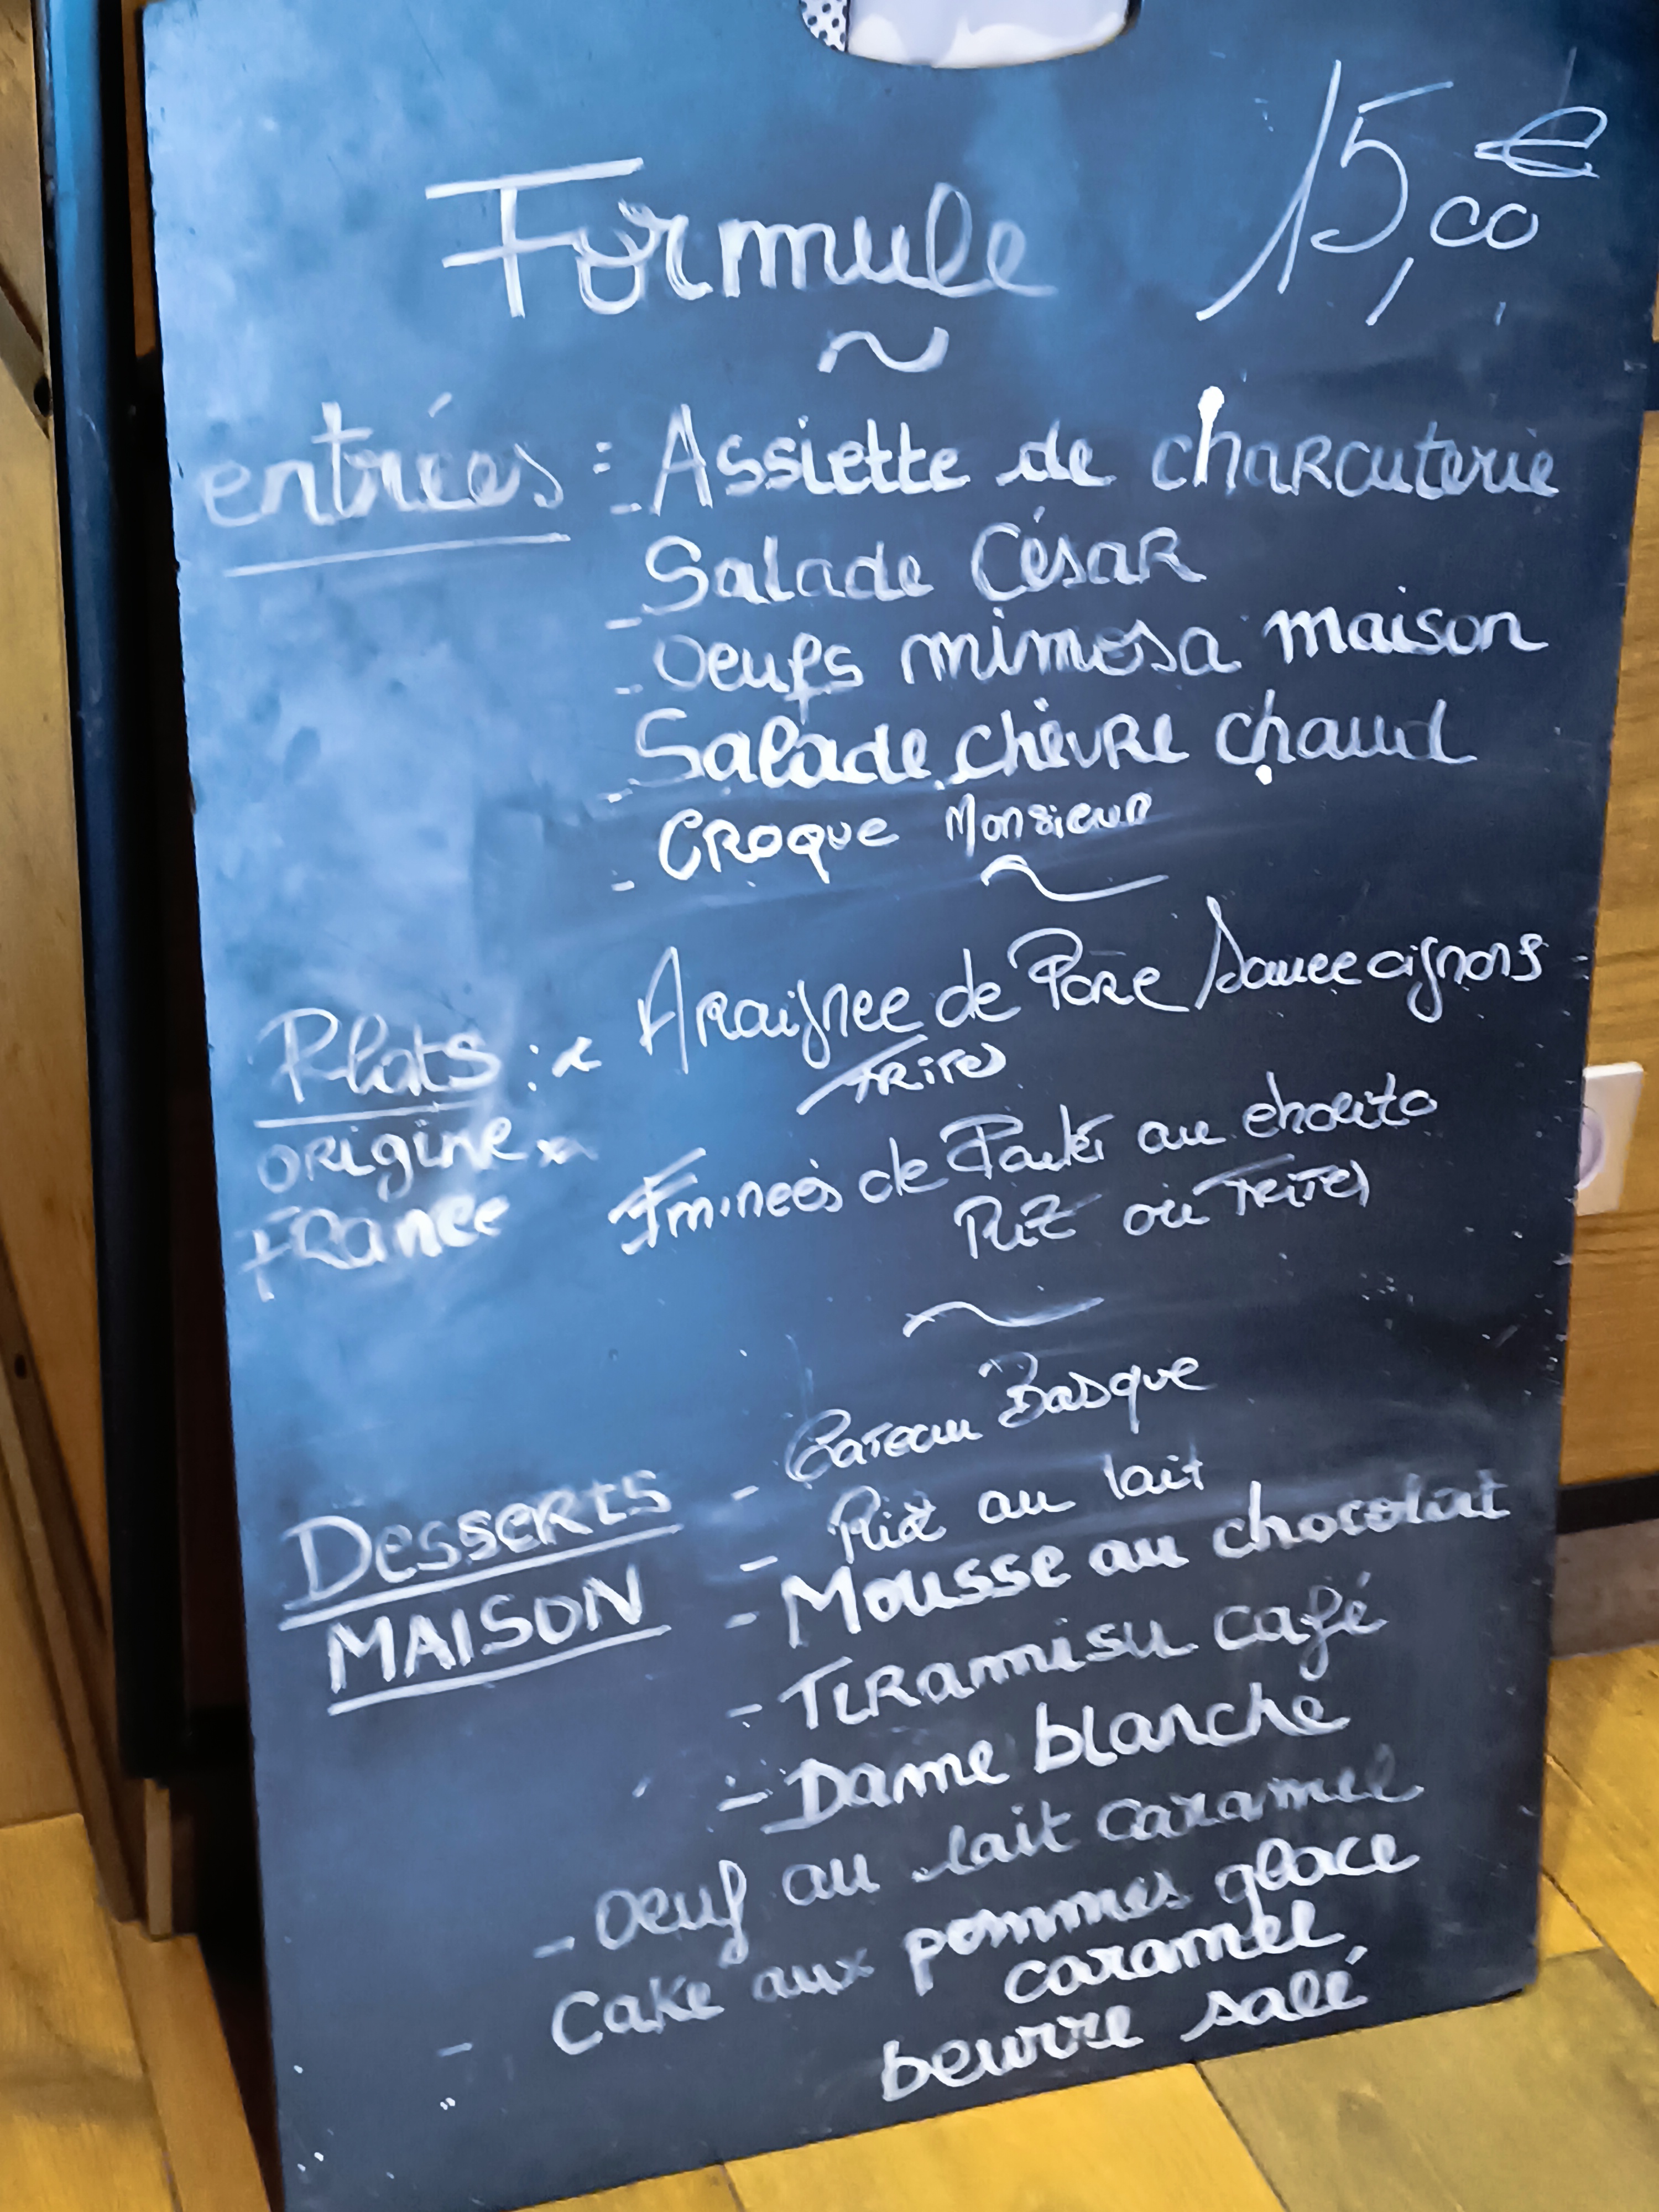 Formule 15,00 €
~
entrées : - Assiette de charcuterie
- Salade César
- Oeufs mimosa maison
- Salade chèvre chaud
- Croque Monsieur
~
Plats : Araignée de Porc Sauce oignons
Frites
origine
France
Eminces de Poulet au chorizo
Riz ou Frites
~
Desserts
MAISON
- Gateau Basque
- Riz au lait
- Mousse au chocolat
- Tiramisu café
- Dame blanche
- Oeuf au lait caramel
- Cake aux pommes glace
caramel
beurre salé